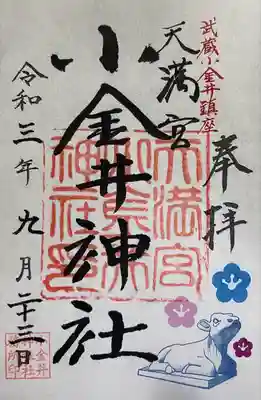 武蔵小金井鎮座
奉拝
天満宮
小金井神社
令和三年九月二十三日
天満宮
小金井
神社印